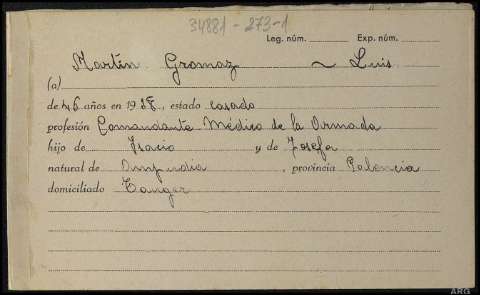 34881-273-1
Leg. núm. Exp. núm.
Martín Gromaz ~ Luis
(a)
de 46 años en 19 , estado casado
profesión Comandante Médico de la Armada
hijo de Isacio y de Josefa
natural de Ampudia , provincia Palencia
domiciliado Tanger
ARG